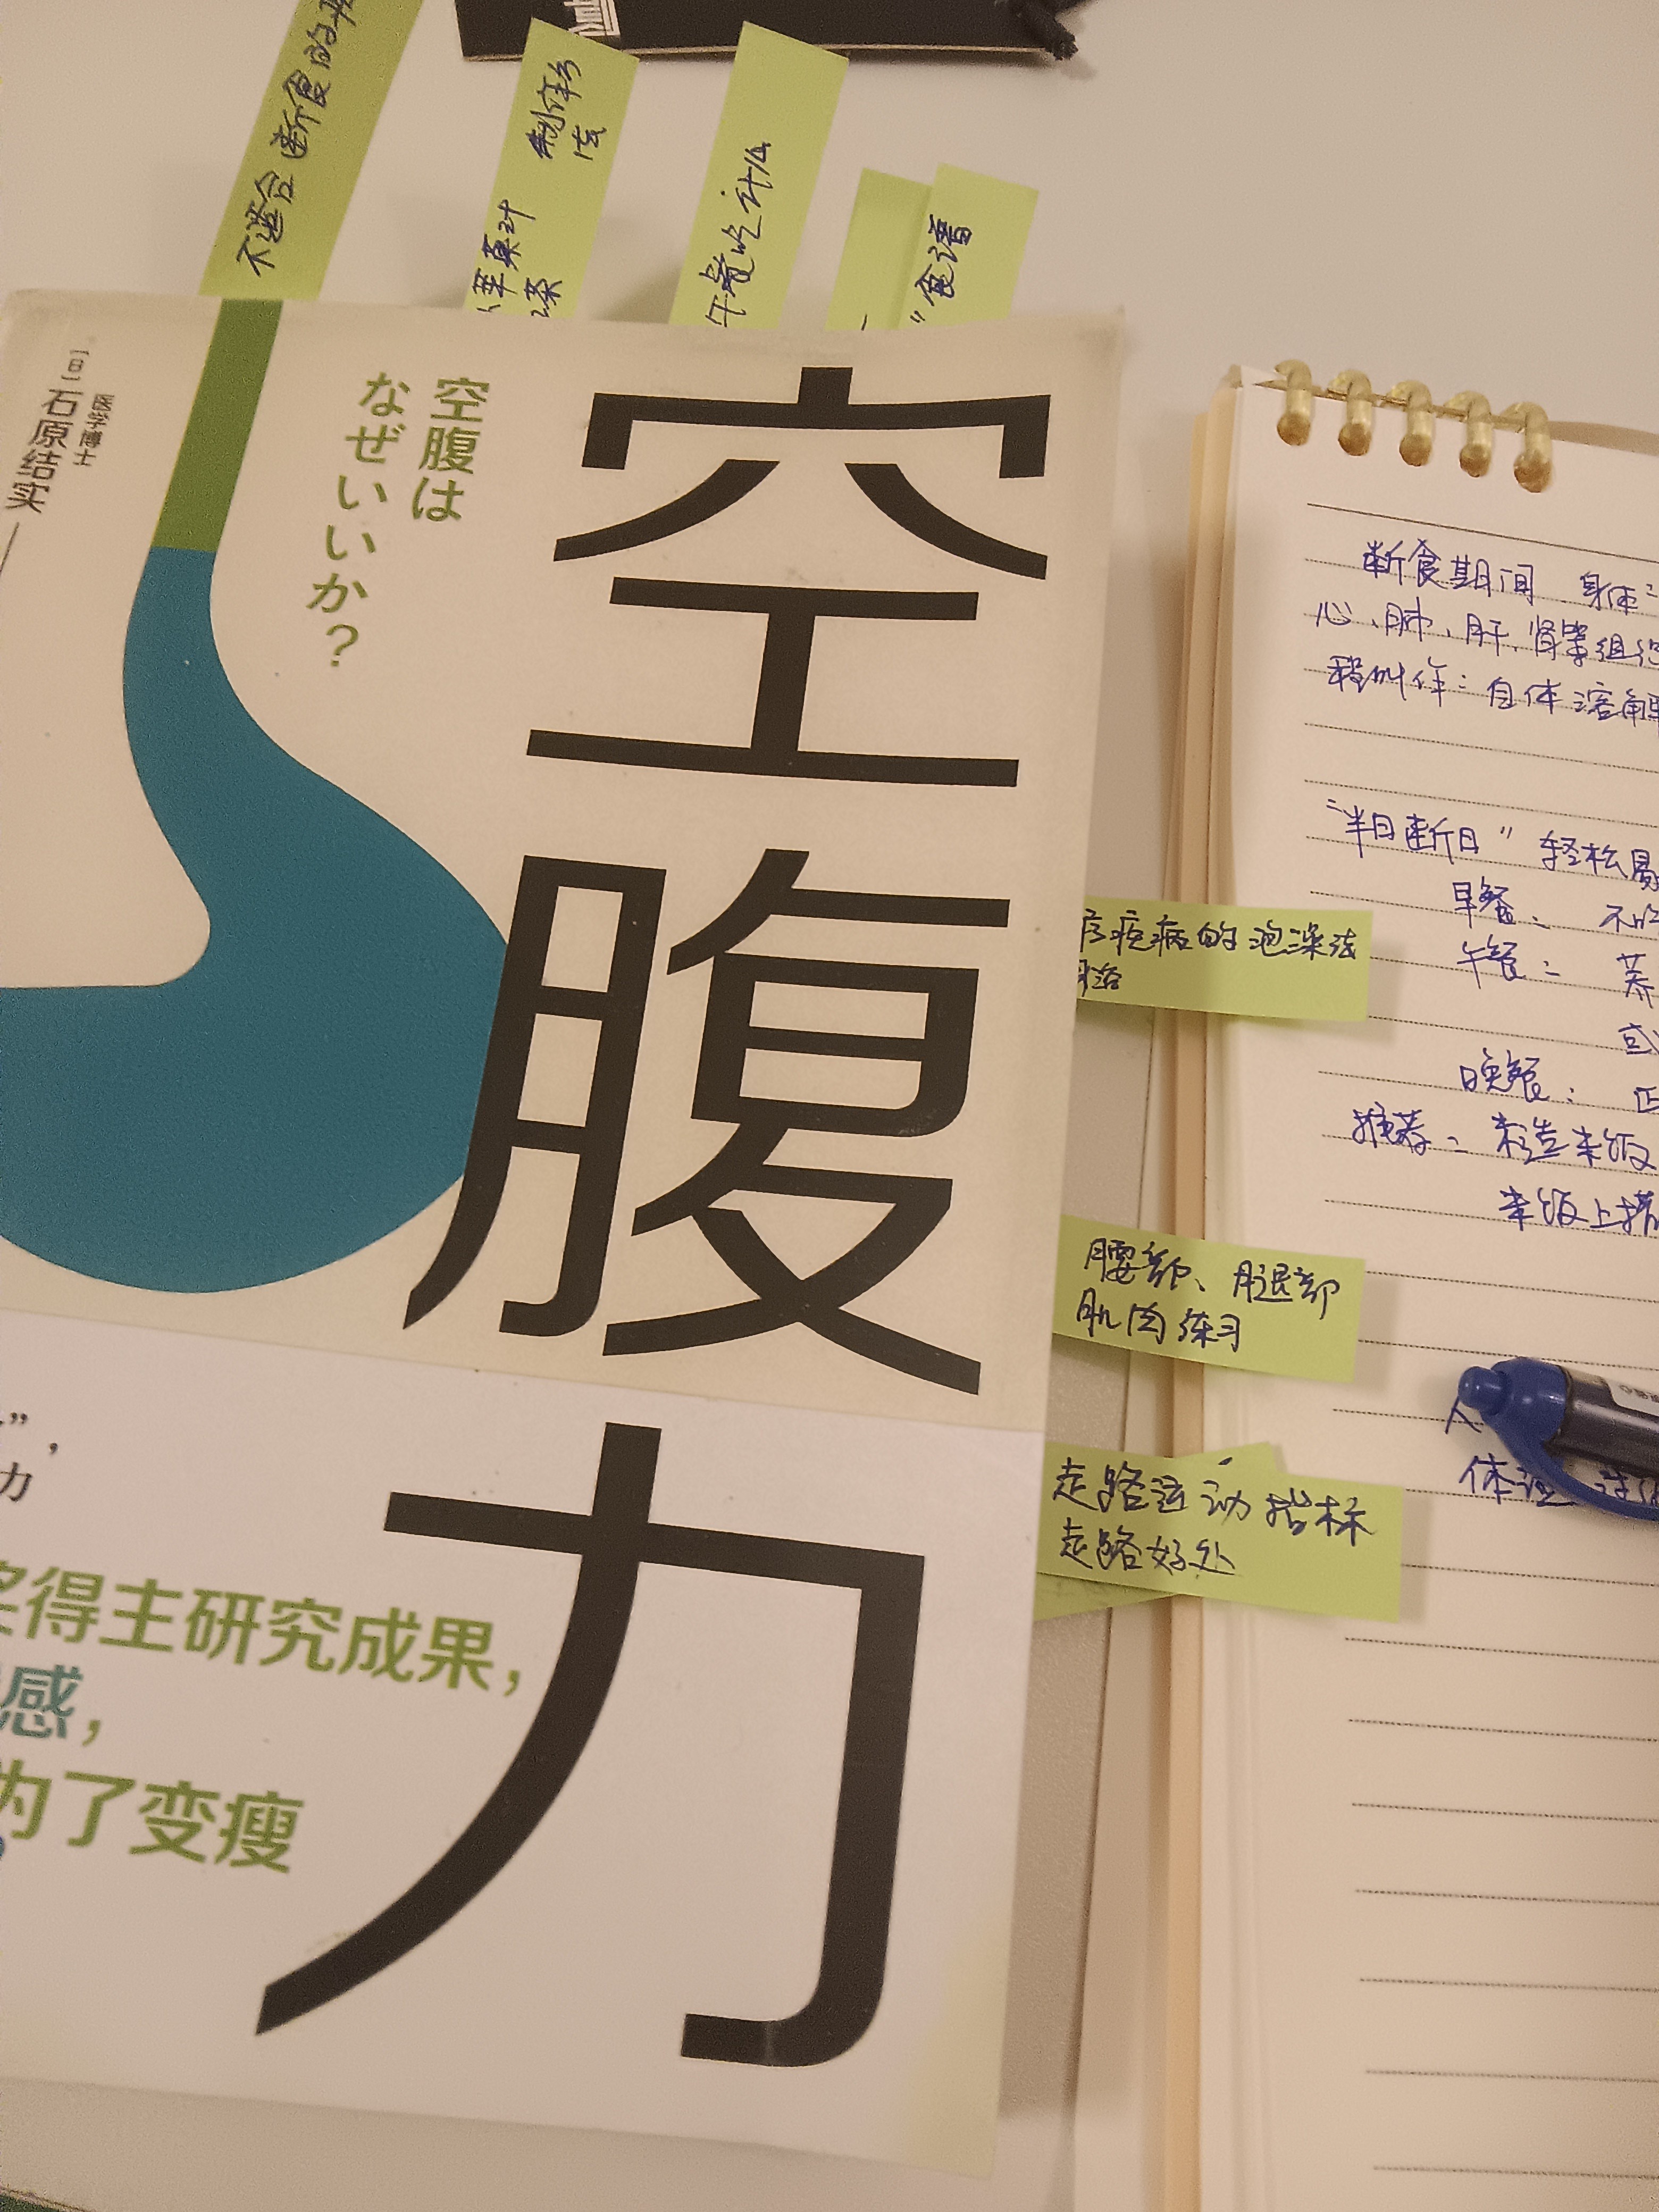 不适合断食的
制作方法
苹果汁
茶
午餐吃什么
"食谱
[日]
医学博士
石原结实
空腹は
なぜいいか?
空腹力
”,
力
得主研究成果,
感,
为了变瘦
疾病的泡澡法
腰部、腿部
肌肉练习
走路运动指标
走路好处
断食期间 身体
心、肺、肝、肾等组
程叫作:自体溶解
“半日断日” 轻松易
早餐: 不吃
午餐: 荞
或
晚餐:
推荐: 米饭
米饭上撒
体温